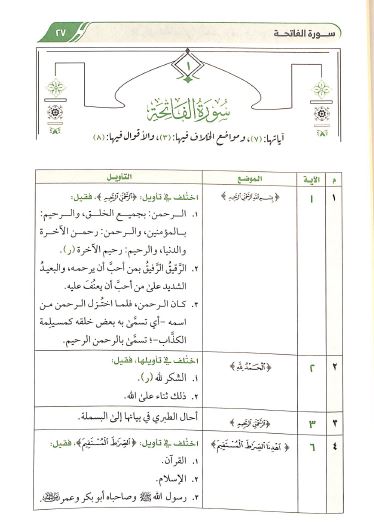 سورة الفاتحة
٢٧
١
سُورَةُ الفَاتِحَةِ
آياتها: (٧)، ومواضع الخلاف فيها: (٣)، والأقوال فيها: (٨)
م الآية الموضع التأويل
١ ١ ﴿بِسْمِ اللَّهِ الرَّحْمَٰنِ الرَّحِيمِ﴾ اختُلف في تأويل: ﴿الرَّحْمَٰنِ الرَّحِيمِ﴾، فقيل:
١. الـرحمن: بجميع الخلـق، والـرحيم:
بـالمؤمنين، والـرحمن: رحمـن الآخـرة
والدنيا، والرحيم: رحيم الآخرة (ر).
٢. الرَّفيقُ الرَّفيقُ بمن أحبَّ أن يرحمه، والبعيدُ
الشديد علىٰ من أحبَّ أن يعنُفَ عليه.
٣. كـان الرحمن، فلما اختُزِل الرحمن من
اسمه -أي تسمَّىٰ به بعض خلقه كمسيلمة
الكذَّاب-؛ تسمَّىٰ بالرحمن الرحيم.
٢ ٢ ﴿الْحَمْدُ لِلَّهِ﴾ اختُلف في تأويلها، فقيل:
١. الشكر لله (ر).
٢. ذلك ثناء علىٰ الله.
٣ ٣ ﴿الرَّحْمَٰنِ الرَّحِيمِ﴾ أحال الطبري في بيانها إلىٰ البسملة.
٤ ٦ ﴿اهْدِنَا الصِّرَاطَ الْمُسْتَقِيمَ﴾ اختُلف في تأويل: ﴿الصِّرَاطَ الْمُسْتَقِيمَ﴾، فقيل:
١. القرآن.
٢. الإسلام.
٣. رسول الله ﷺ وصاحباه أبو بكر وعمر